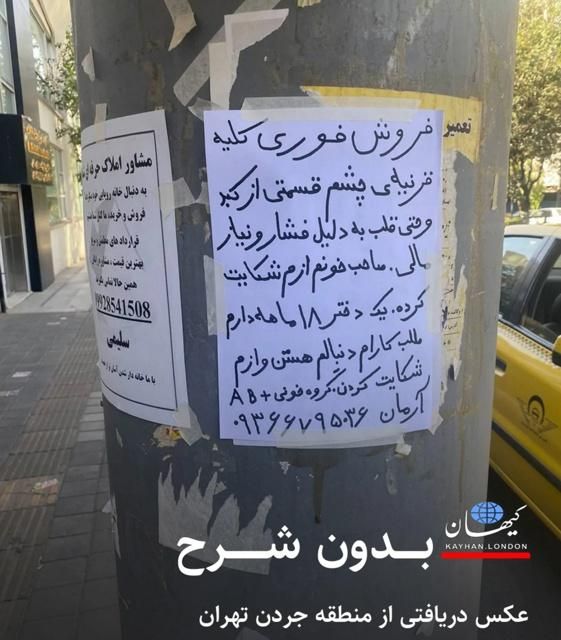 فروش فوری کلیه
قرنیه‌ی چشم قسمتی از کبد
وقتی قلب به دلیل فشار و نیاز
مالی. صاحب خونم ازم شکایت
کرده. یک دختر ۱۸ ماهه دارم
طلب کارام دنبالم هستن و ازم
شکایت کردن. گروه خونی +AB
آرمان ۰۹۳۶۶۷۹۵۰۳۶
تعمیر
مشاور املاک حرفه‌ای
به دنبال خانه رویایی خود
فروش و خرید،
قراردادهای مطمئن و
بهترین قیمت، مشاوره
همین حالا تماس
09928541508
سلیمی
با ما خانه دار شدن آسان تر از
کیهان
KAYHAN.LONDON
بدون شرح
عکس دریافتی از منطقه جردن تهران